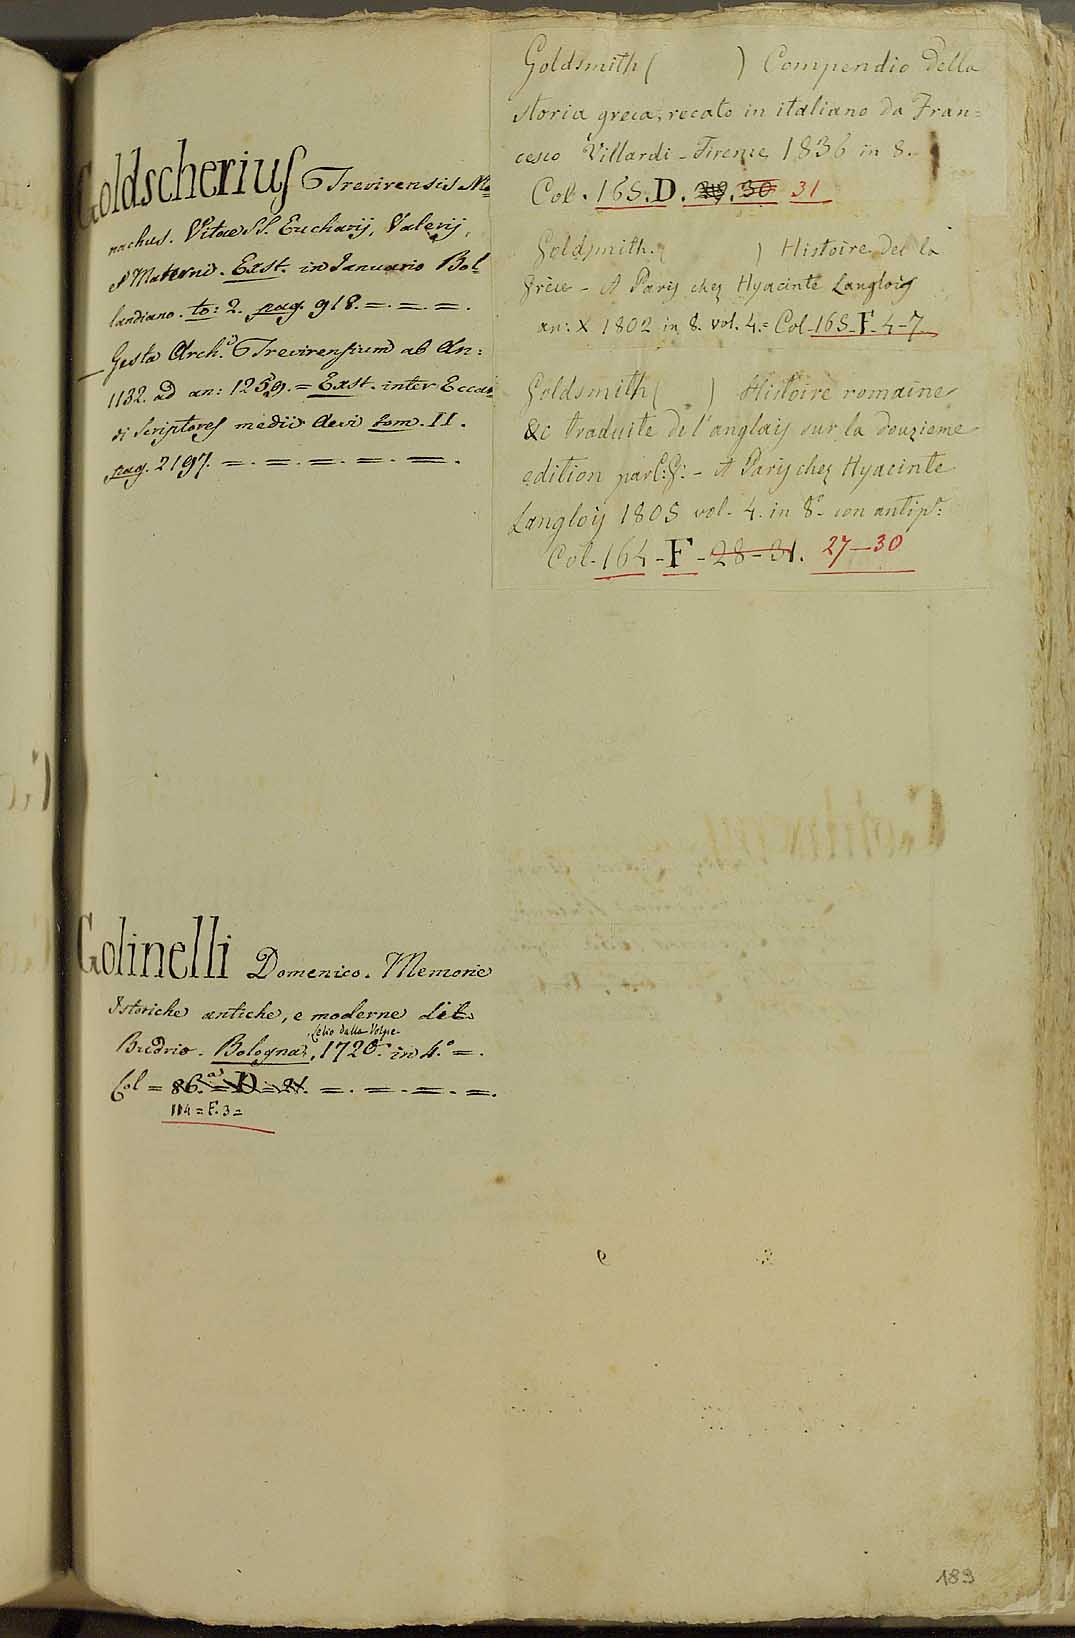 Goldscherius Trevirensis Mo=
nachus. Vitae SS. Eucharij, Valerij,
& Materni. Exst. in Januario Bol
landiano. to: 2. pag. 918. =. =. =.
— Gesta Arch.i Trevirensium ab An:
1132. ad an: 1259. = Exst. inter Eccar
di Scriptores medii Aevi tom. II.
pag. 2197. =. =. =. =. =.
Golinelli Domenico. Memorie
Istoriche antiche, e moderne di
Budrio. Bologna, Lelio dalla Volpe 1720. in 4.o =.
Col = 86. = D = 21. =. =. =. =. =.
114 = F. 3 =
Goldsmith ( ) Compendio della
storia greca, recato in italiano da Fran=
cesco Villardi - Firenze 1836 in 8.
Col. 165. D. 30 31
Goldsmith. ( ) Histoire de la
Grèce - A Paris chez Hyacinte Langlois
an: X 1802 in 8. vol. 4. = Col-165-F-4-7
Goldsmith ( ) Histoire romaine
&c traduite de l'anglais sur la douzieme
edition par - A Paris chez Hyacinte
Langlois 1805 vol. 4. in 8o. con antip.
Col-164-F-28-31. 27-30
189